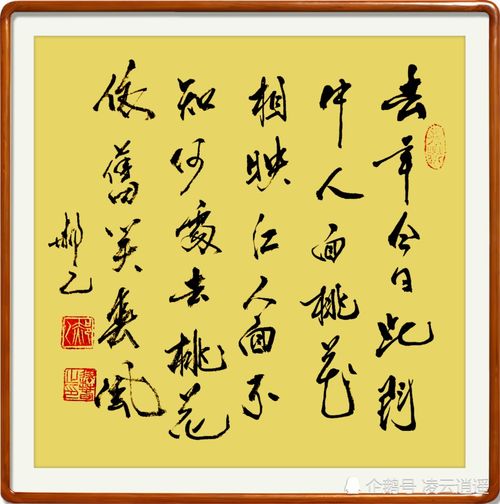 去年今日此門
中人面桃花
相映红人面不
知何處去桃花
依舊笑春風
企鹅号 凌云逍遥